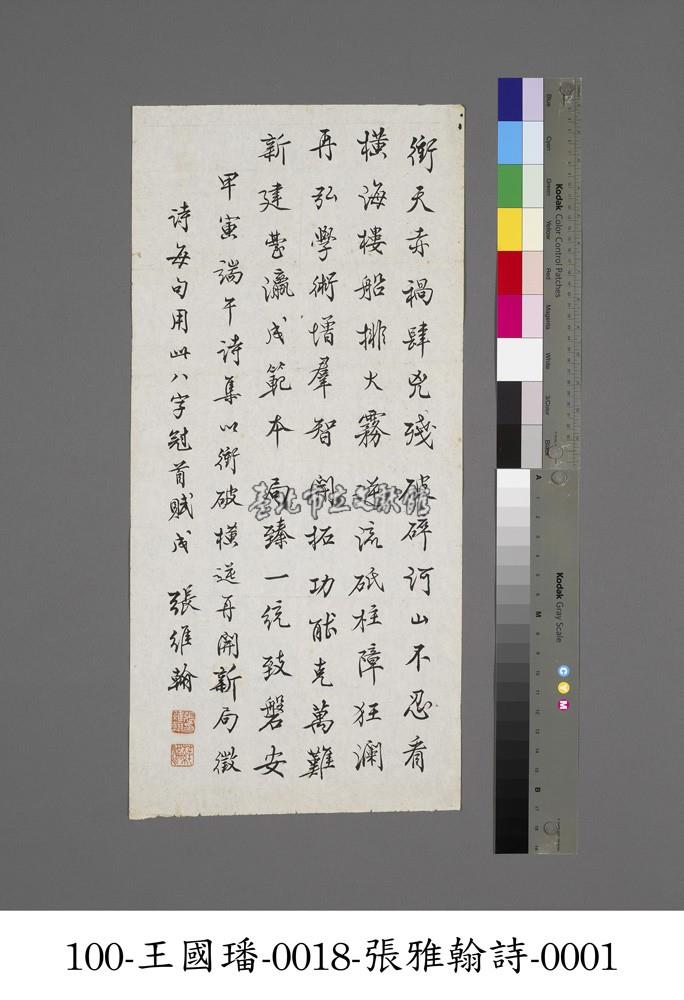 衝天赤禍肆兇殘破碎河山不忍看
橫海樓船排大霧逆流砥柱障狂瀾
再弘學術增羣智開拓功能克萬難
新建臺瀛成範本局臻一統致磐安
甲寅端午詩集以衝破橫逆再開新局徵
詩每句用此八字冠首賦成 張維翰
臺北市立文獻館
Kodak Color Control Patches
Blue
Cyan
Green
Yellow
Red
Magenta
White
3/Color
Black
Kodak Gray Scale
A
M
B
C
Y
M
100-王國璠-0018-張雅翰詩-0001